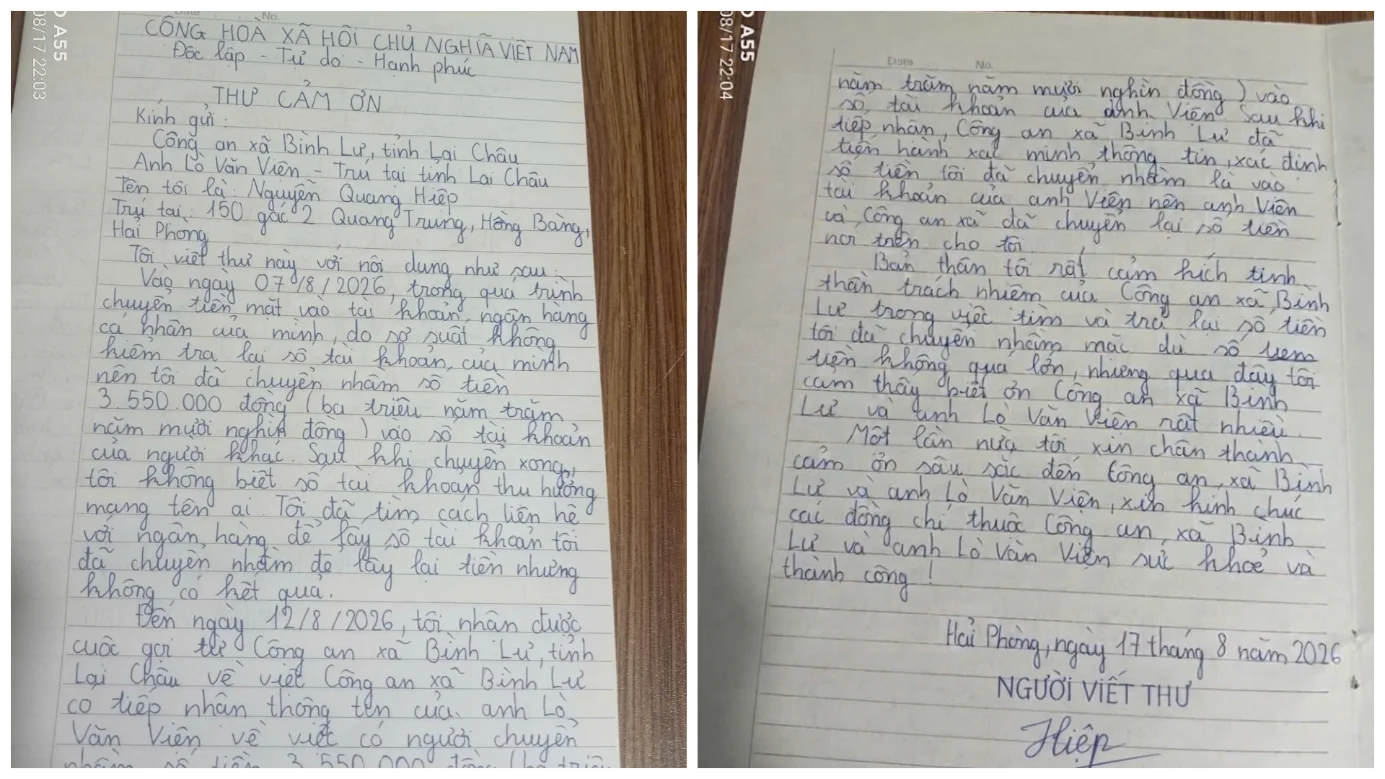 No.
CỘNG HOÀ XÃ HỘI CHỦ NGHĨA VIỆT NAM
Độc lập - Tự do - Hạnh phúc
THƯ CẢM ƠN
Kính gửi:
Công an xã Bình Lư, tỉnh Lai Châu
Anh Lò Văn Viên - Trú tại tỉnh Lai Châu
Tên tôi là: Nguyễn Quang Hiệp
Trú tại: 150 gác 2 Quang Trung, Hồng Bàng,
Hải Phòng
Tôi viết thư này với nội dung như sau:
Vào ngày 07/8/2026, trong quá trình
chuyển tiền mặt vào tài khoản ngân hàng
cá nhân của mình, do sơ suất không
kiểm tra lại số tài khoản của mình
nên tôi đã chuyển nhầm số tiền
3.550.000 đồng (ba triệu năm trăm
năm mươi nghìn đồng) vào số tài khoản
của người khác. Sau khi chuyển xong,
tôi không biết số tài khoản thu hưởng
mang tên ai. Tôi đã tìm cách liên hệ
với ngân hàng để lấy số tài khoản tôi
đã chuyển nhầm để lấy lại tiền nhưng
không có kết quả.
Đến ngày 12/8/2026, tôi nhận được
cuộc gọi từ Công an xã Bình Lư, tỉnh
Lai Châu về việc Công an xã Bình Lư
có tiếp nhận thông tin của anh Lò
Văn Viên về việc có người chuyển
nhầm số tiền 3.550.000 đồng (ba triệu
08/17 22:03
A55
Date No.
năm trăm năm mươi nghìn đồng) vào
số tài khoản của anh Viên. Sau khi
tiếp nhận, Công an xã Bình Lư đã
tiến hành xác minh thông tin, xác định
số tiền tôi đã chuyển nhầm là vào
tài khoản của anh Viên nên anh Viên
và Công an xã đã chuyển lại số tiền
nói trên cho tôi.
Bản thân tôi rất cảm kích tinh
thần trách nhiệm của Công an xã Bình
Lư trong việc tìm và trả lại số tiền
tôi đã chuyển nhầm mặc dù số
tiền không quá lớn, nhưng qua đây tôi
cảm thấy biết ơn Công an xã Bình
Lư và anh Lò Văn Viên rất nhiều.
Một lần nữa tôi xin chân thành
cảm ơn sâu sắc đến Công an xã Bình
Lư và anh Lò Văn Viên, xin kính chúc
các đồng chí thuộc Công an xã Bình
Lư và anh Lò Văn Viên sức khoẻ và
thành công!
Hải Phòng, ngày 17 tháng 8 năm 2026
NGƯỜI VIẾT THƯ
Hiệp
08/17 22:04
A55